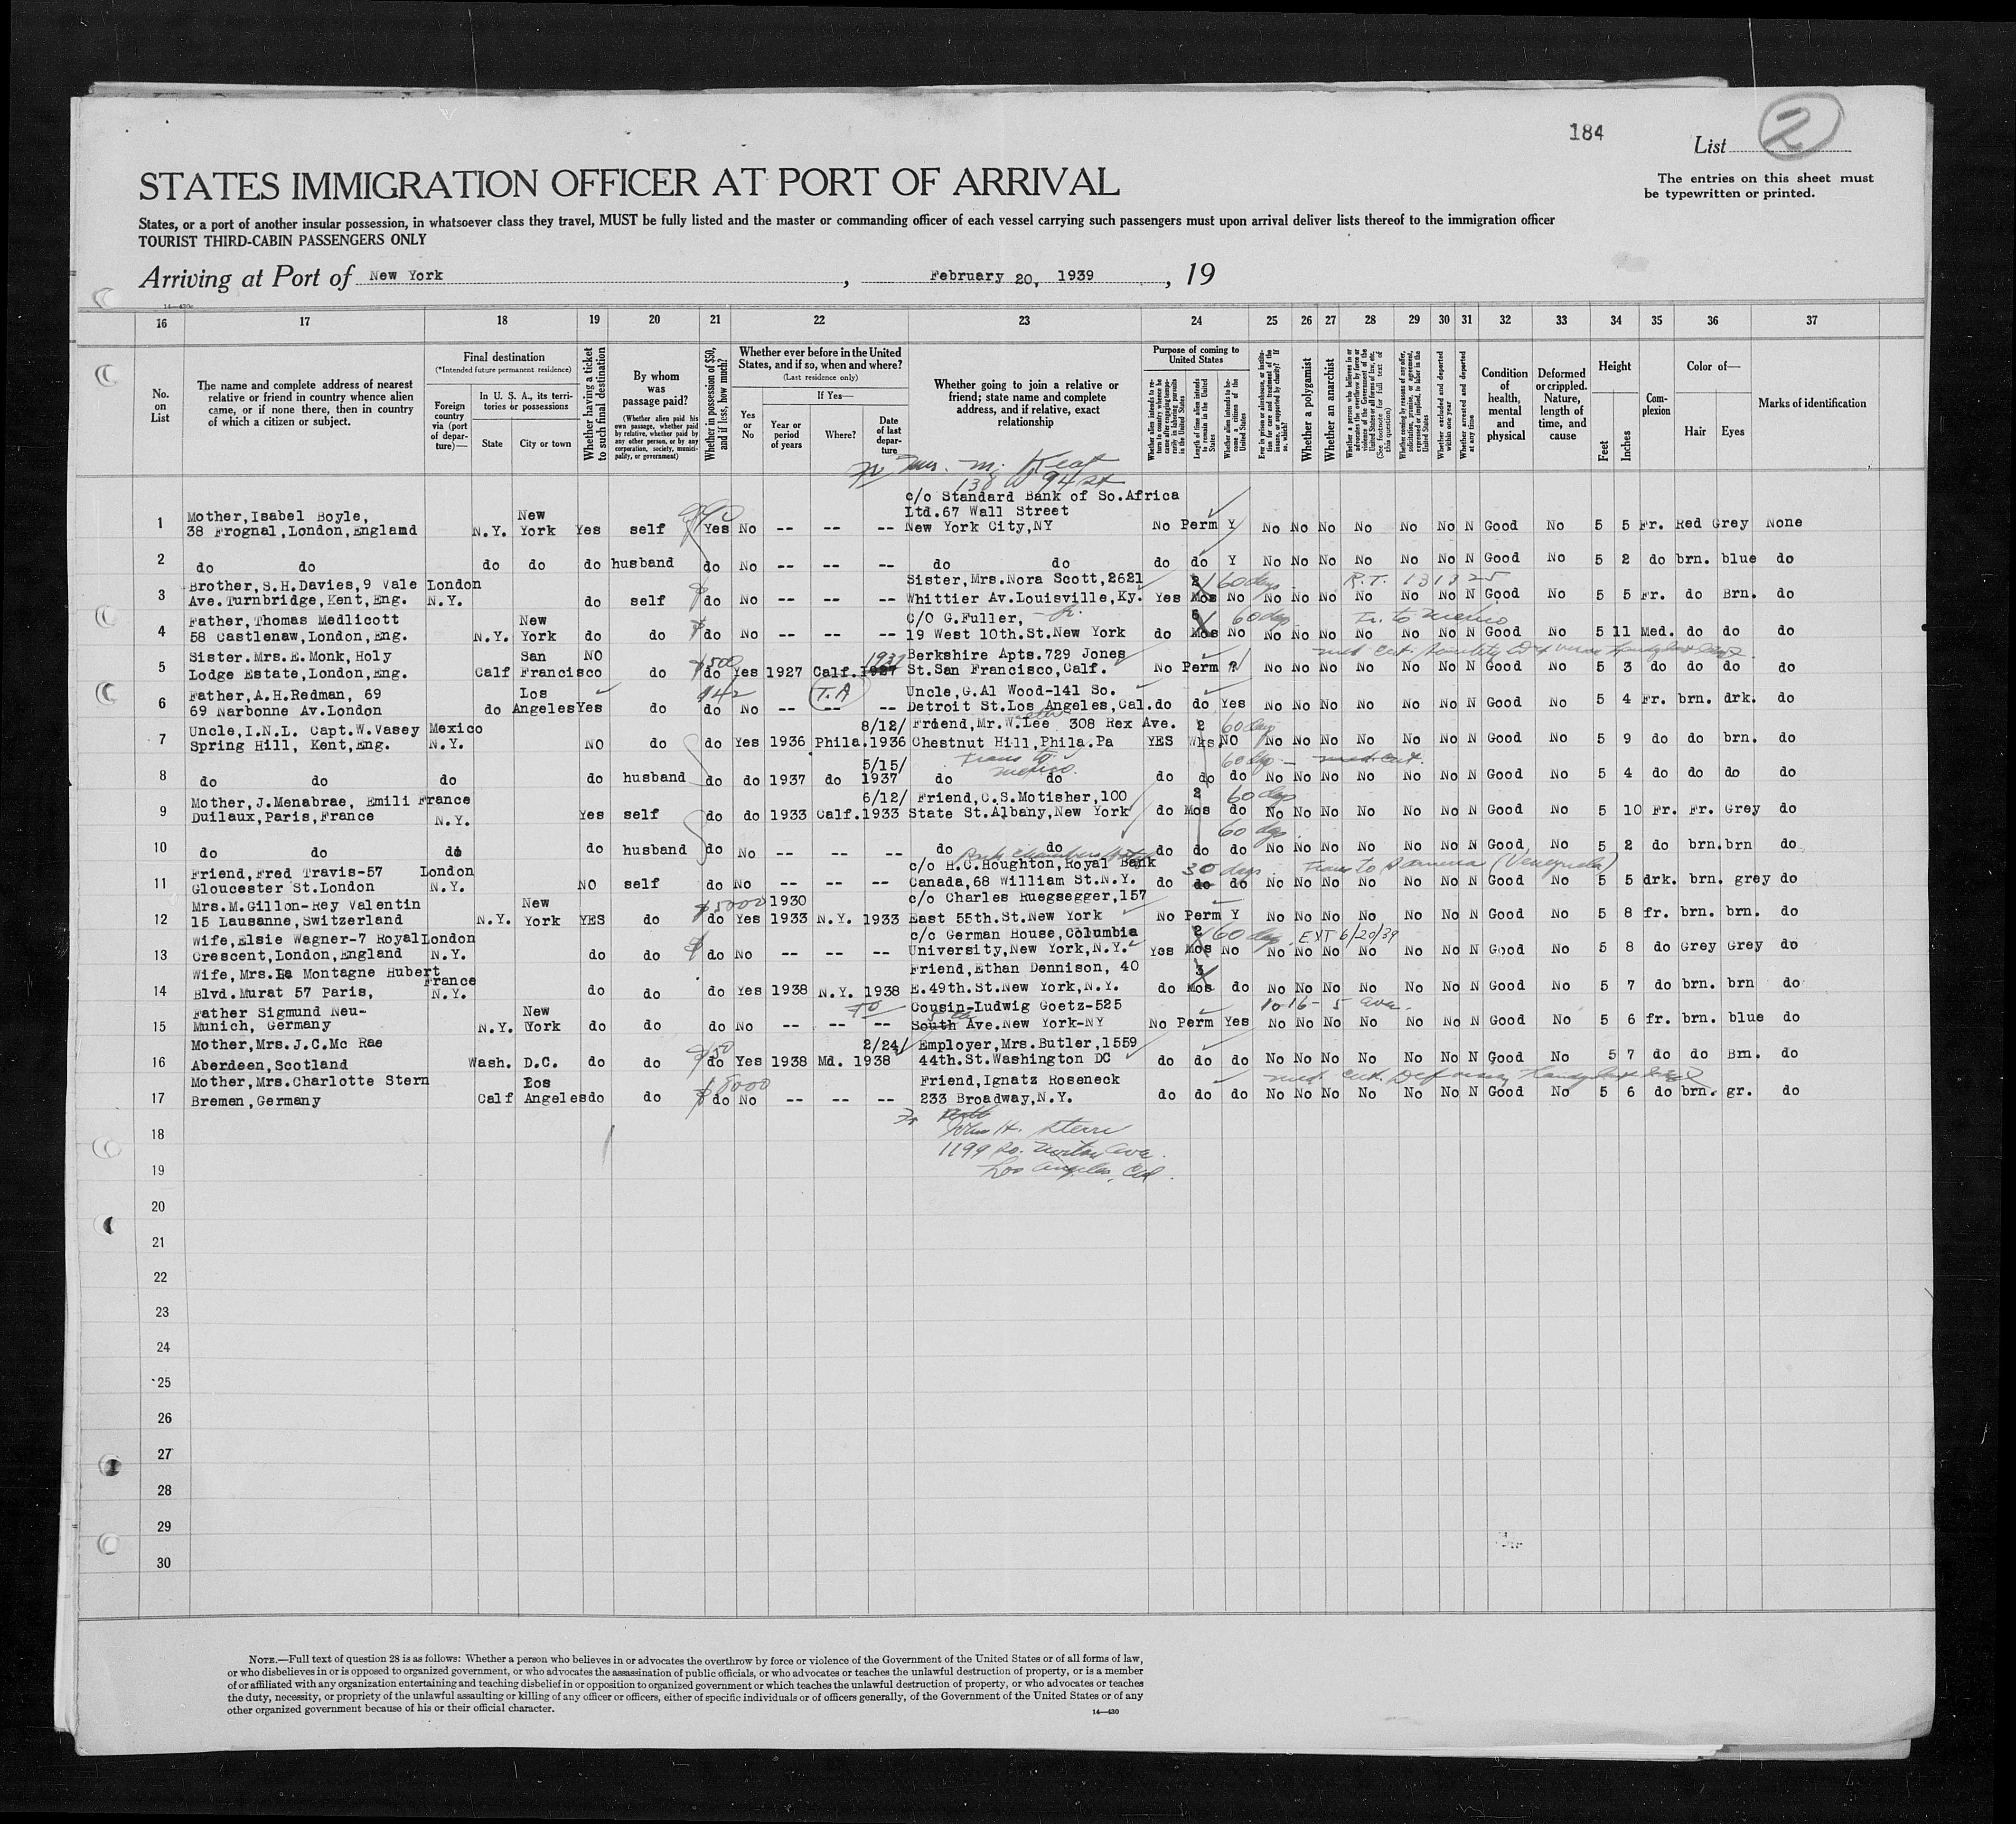 184
List 2
STATES IMMIGRATION OFFICER AT PORT OF ARRIVAL
The entries on this sheet must
be typewritten or printed.
States, or a port of another insular possession, in whatsoever class they travel, MUST be fully listed and the master or commanding officer of each vessel carrying such passengers must upon arrival deliver lists thereof to the immigration officer
TOURIST THIRD-CABIN PASSENGERS ONLY
Arriving at Port of New York, February 20, 1939, 19
14—430c
16 17 18 19 20 21 22 23 24 25 26 27 28 29 30 31 32 33 34 35 36 37
No. on List
The name and complete address of nearest relative or friend in country whence alien came, or if none there, then in country of which a citizen or subject.
Final destination
(*Intended future permanent residence)
Foreign country via (port of departure)—
In U. S. A., its territories or possessions
State City or town
Whether having a ticket to such final destination
By whom was passage paid?
(Whether alien paid his own passage, whether paid by relative, whether paid by any other person, or by any corporation, society, municipality, or government)
Whether in possession of $50, and if less, how much?
Whether ever before in the United States, and if so, when and where?
(Last residence only)
Yes or No
If Yes—
Year or period of years
Where?
Date of last departure
Whether going to join a relative or friend; state name and complete address, and if relative, exact relationship
Purpose of coming to United States
Whether alien intends to return to country whence he came after engaging temporarily in laboring pursuits in the United States
Length of time alien intends to remain in the United States
Whether alien intends to become a citizen of the United States
Ever in prison or almshouse, or institution for care and treatment of the insane, or supported by charity? If so, which?
Whether a polygamist
Whether an anarchist
Whether a person who believes in or advocates the overthrow by force or violence of the Government of the United States or all forms of law, etc. (See footnote for full text of this question)
Whether coming by reasons of any offer, solicitation, promise, or agreement, expressed or implied, to labor in the United States
Whether excluded and deported within one year
Whether arrested and deported at any time
Condition of health, mental and physical
Deformed or crippled. Nature, length of time, and cause
Height
Feet Inches
Complexion
Color of—
Hair Eyes
Marks of identification
Mrs. M. Keat
138 W 94 St
c/o Standard Bank of So.Africa
Mother,Isabel Boyle, New Ltd.67 Wall Street
1 38 Frognal,London,England N.Y. York Yes self Yes No -- -- -- New York City,NY No Perm Y No No No No No No N Good No 5 5 Fr. Red Grey None
2 do do do do do husband do No -- -- -- do do do do Y No No No No No No N Good No 5 2 do brn. blue do
Brother,S.H.Davies,9 Vale London Sister,Mrs.Nora Scott,2621 2 60 days R.T. 131825
3 Ave.Turnbridge,Kent,Eng. N.Y. do self do No -- -- -- Whittier Av.Louisville,Ky. Yes Mos No No No No No No No N Good No 5 5 Fr. do Brn. do
Father,Thomas Medlicott New C/O G.Fuller, 60 days Tr. to Mexico
4 58 Castlenaw,London,Eng. N.Y. York do do do No -- -- -- 19 West 10th.St.New York do Mos No No No No No No No N Good No 5 11 Med. do do do
Sister.Mrs.E.Monk, Holy San NO $500 1937 Berkshire Apts.729 Jones
5 Lodge Estate,London,Eng. Calf Francisco do do Yes 1927 Calf.1927 St.San Francisco,Calf. No Perm ? No No No No No No N Good No 5 3 do do do do
Father,A.H.Redman, 69 Los 142 T.A Uncle,G.Al Wood-141 So.
6 69 Narbonne Av.London do Angeles Yes do do No -- -- -- Detroit St.Los Angeles,Cal. do do Yes No No No No No No N Good No 5 4 Fr. brn. drk. do
Uncle,I.N.L. Capt.W.Vasey Mexico 8/12/ Friend,Mr.W.Lee 308 Rex Ave. 2 60 days
7 Spring Hill, Kent,Eng. N.Y. NO do do Yes 1936 Phila.1936 Chestnut Hill,Phila.Pa YES Wks NO No No No No No No N Good No 5 9 do do brn. do
5/15/ Trans to Mexico 60 dys - med. cert.
8 do do do do husband do do 1937 do 1937 do do do do do No No No No No No N Good No 5 4 do do do do
Mother,J.Menabrae, Emili France 6/12/ Friend,C.S.Motisher,100 2 60 days
9 Duilaux,Paris,France N.Y. Yes self do do 1933 Calf.1933 State St.Albany,New York do Mos do No No No No No No N Good No 5 10 Fr. Fr. Grey do
60 dys.
10 do do do do husband do No -- -- -- do do do do do No No No No No No N Good, No 5 2 do brn.brn do
Friend,Fred Travis-57 London c/o H.C.Houghton,Royal Bank 30 days Trans to (Venezuela)
11 Gloucester St.London N.Y. NO self do No -- -- -- Canada,68 William St.N.Y. do do do No No No No No No N Good No 5 5 drk. brn. grey do
Mrs.M.Gillon-Rey Valentin New $5000 1930 c/o Charles Ruegsegger,157
12 15 Lausanne,Switzerland N.Y. York YES do do Yes 1933 N.Y. 1933 East 55th.St.New York No Perm Y No No No No No No N Good No 5 8 fr. brn. brn. do
Wife,Elsie Wagner-7 Royal London c/o German House,Columbia 2 60 days. EXT 6/20/39
13 Crescent,London,England N.Y. do do do No -- -- -- University,New York,N.Y. Yes Mos No No No No No No No N Good No 5 8 do Grey Grey do
Wife,Mrs.La Montagne Hubert France Friend,Ethan Dennison, 40 3
14 Blvd.Murat 57 Paris, N.Y. do do do Yes 1938 N.Y. 1938 E.49th.St.New York,N.Y. do Mos do No No No No No No N Good No 5 7 do brn. brn do
Father Sigmund Neu- New To Cousin-Ludwig Goetz-525 1016 - 5 ave.
15 Munich, Germany N.Y. York do do do No -- -- -- South 5th Ave.New York-NY No Perm Yes No No No No No No N Good No 5 6 fr. brn. blue do
Mother,Mrs.J.C.Mc Rae 2/24/ Employer,Mrs.Butler,1559
16 Aberdeen,Scotland Wash. D.C. do do $50 do Yes 1938 Md. 1938 44th.St.Washington DC do do do No No No No No No N Good No 5 7 do do Brn. do
Mother,Mrs.Charlotte Stern Los $8000 Friend,Ignatz Roseneck
17 Bremen,Germany Calf Angeles do do do No -- -- -- 233 Broadway,N.Y. do do do No No No No No No N Good No 5 6 do brn. gr. do
18 John H. Stern
1199 So. Norton Ave.
19 Los Angeles, Cal.
20
21
22
23
24
25
26
27
28
29
30
NOTE.—Full text of question 28 is as follows: Whether a person who believes in or advocates the overthrow by force or violence of the Government of the United States or of all forms of law,
or who disbelieves in or is opposed to organized government, or who advocates the assassination of public officials, or who advocates or teaches the unlawful destruction of property, or is a member
of or affiliated with any organization entertaining and teaching disbelief in or opposition to organized government or which teaches the unlawful destruction of property, or who advocates or teaches
the duty, necessity, or propriety of the unlawful assaulting or killing of any officer or officers, either of specific individuals or of officers generally, of the Government of the United States or of any
other organized government because of his or their official character.
14—430